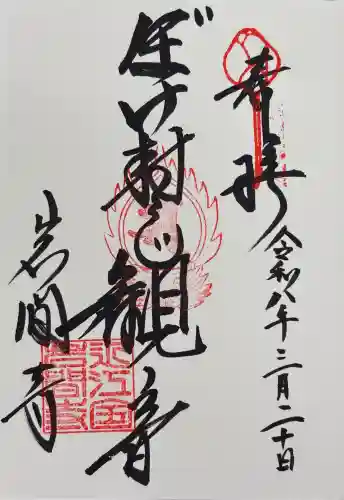 奉拝
令和八年三月二十日
ぼけ封じ観音
岩間寺
近江国岩間寺